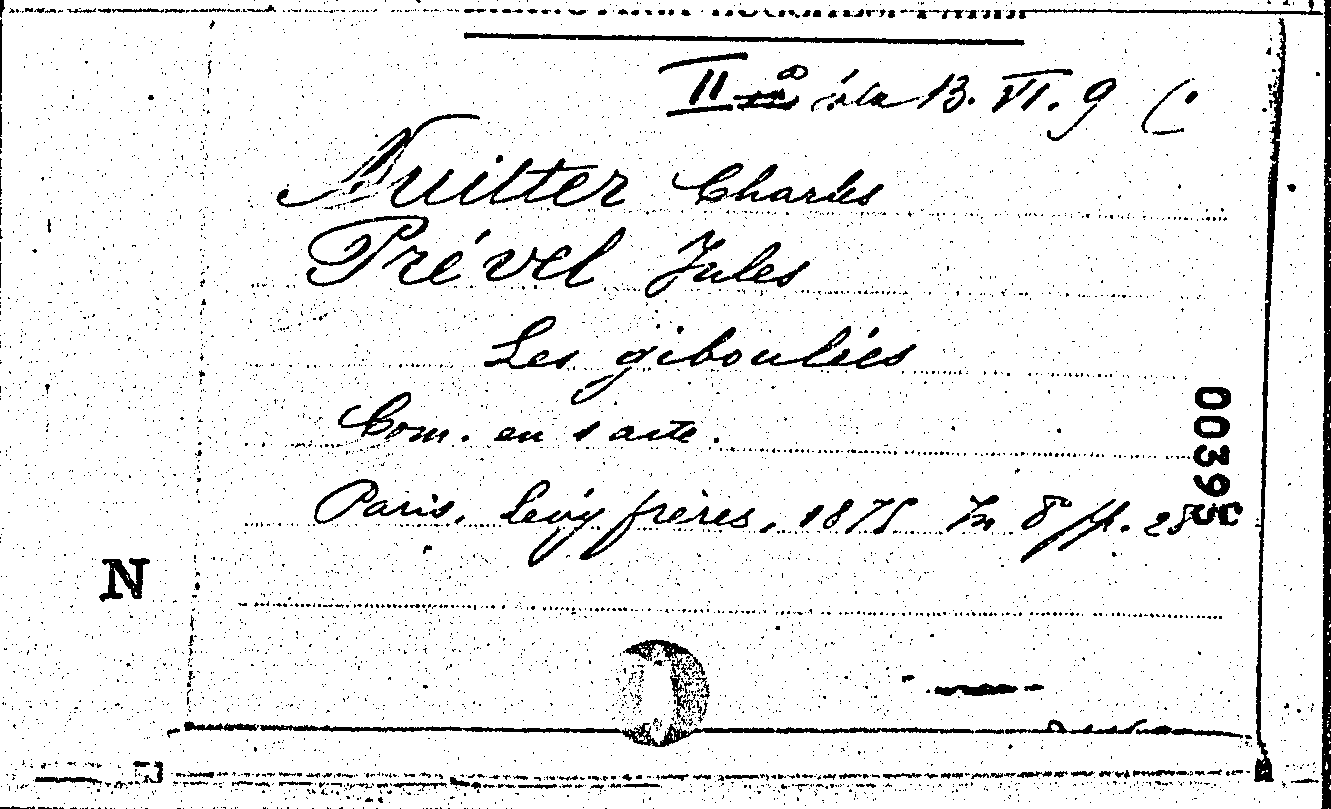 13. VI. 9
Nuitter Charles
Prével Jules
Les giboulées
Com. en 1 acte.
Paris. Levy frères, 1875 In 8° pp. 28
N